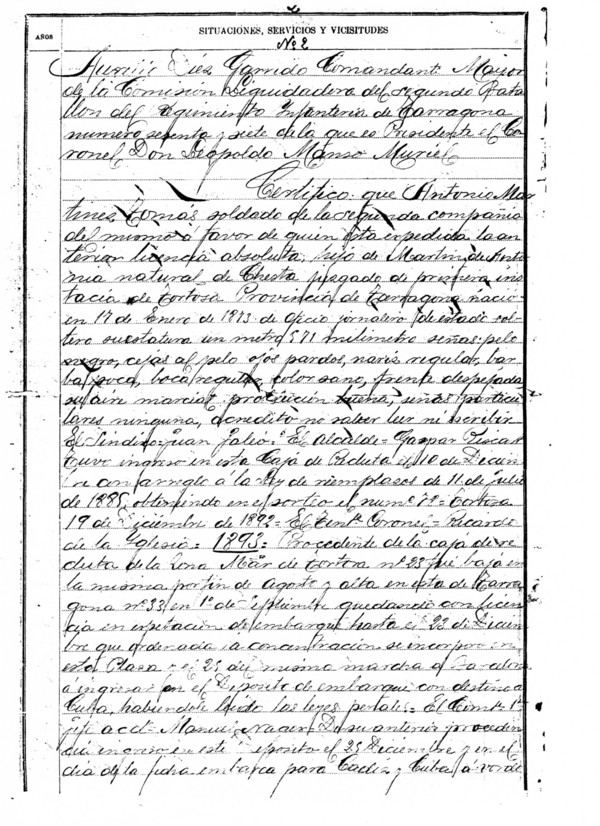 AÑOS
SITUACIONES, SERVICIOS Y VICISITUDES
Nº 2
Garrido Comandante Mayor
de la Comisión Liquidadora del segundo Bata
llon del Regimiento Infanteria de Tarragona
numero sesenta y siete de la que es Presidente el Co
ronel Don Leopoldo Manso Muriel
Certifico: que Antonio Mar
tinez Tomás soldado de la segunda compañia
del mismo á favor de quien está expedida la an
terior licencia absoluta, hijo de Martin, de Anto
nia natural de Cherta juzgado de primera ins
tacia de Tortosa Provincia de Tarragona nacio
en 17 de Enero de 1873 de oficio jornalero de estado sol
tero su estatura un metro 571 milimetro señas: pelo
negro, cejas al pelo ojos pardos, naris regular, bar
ba poca, boca regular color sano, frente despejada
su aire marcial producción buena, señas particu
lares ninguna, acreditó no saber leer ni escribir
El Sindico = Juan = El Alcalde = Gaspar
Tuvo ingreso en esta Caja de Recluta el 10 de Diciem
bre con arreglo á la Ley de reemplasos de 11 de julio
de 1885, obteniendo en el sorteo el numº = Tortosa
19 de Diciembre de 1892 = El Tente Coronel = Ricardo
de la Yglesia = 1893 = Procedente de la caja de re
cluta de la Zona Mar de Tortosa nº 23 fué baja en
la misma por fin de Agosto y alta en esta de Tarra
gona nº 33 en 1º de Septiembre quedando con licen
cia en espectación de embarque hasta el 22 de Diciem
bre que ordenada la concentración se incorporó en
esta Plaza y el 25 del mismo marcha á Barcelona
á ingresar en el Deposito de embarque con destino á
Cuba, habiendole leido las leyes penales = El Comte 1er
jefe acctl = Manuel = De su anterior proceden
cia ingresó en este Deposito el 25 Diciembre y en el
dia de la fecha embarca para Cadiz y Cuba, á